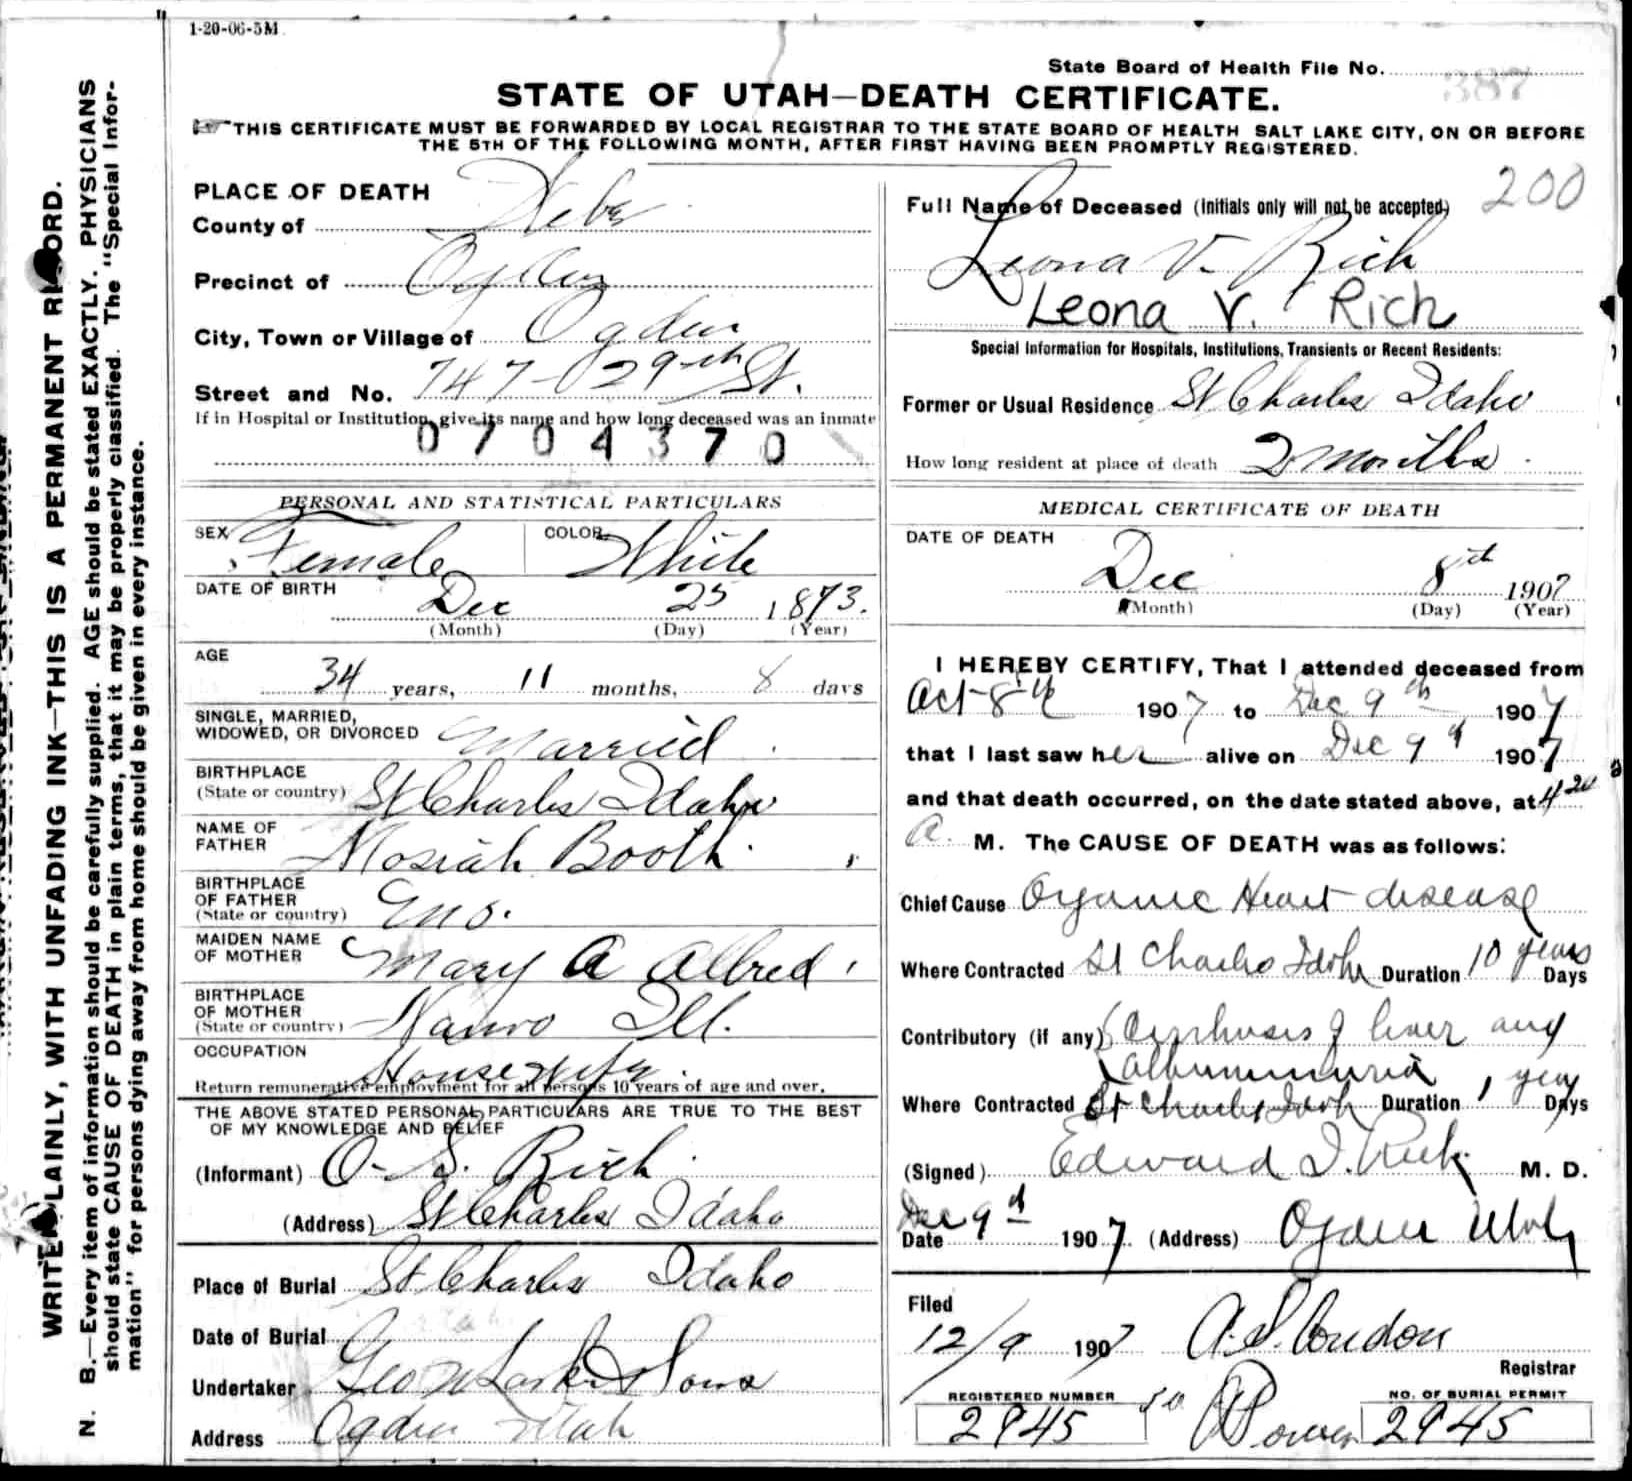 1-20-06-5M
State Board of Health File No. 387
STATE OF UTAH—DEATH CERTIFICATE.
THIS CERTIFICATE MUST BE FORWARDED BY LOCAL REGISTRAR TO THE STATE BOARD OF HEALTH SALT LAKE CITY, ON OR BEFORE
THE 5TH OF THE FOLLOWING MONTH, AFTER FIRST HAVING BEEN PROMPTLY REGISTERED.
WRITE PLAINLY, WITH UNFADING INK—THIS IS A PERMANENT RECORD.
N. B.—Every item of information should be carefully supplied. AGE should be stated EXACTLY. PHYSICIANS
should state CAUSE OF DEATH in plain terms, that it may be properly classified. The "Special Infor-
mation" for persons dying away from home should be given in every instance.
PLACE OF DEATH
County of Weber
Precinct of Ogden
City, Town or Village of Ogden
Street and No. 747- 29th St.
If in Hospital or Institution, give its name and how long deceased was an inmate
0704370
PERSONAL AND STATISTICAL PARTICULARS
SEX Female COLOR White
DATE OF BIRTH Dec 25 1873.
(Month) (Day) (Year)
AGE
34 years, 11 months, 8 days
SINGLE, MARRIED,
WIDOWED, OR DIVORCED Married
BIRTHPLACE
(State or country) St Charles Idaho
NAME OF
FATHER Mosiah Booth
BIRTHPLACE
OF FATHER
(State or country) Eng.
MAIDEN NAME
OF MOTHER Mary A Allred
BIRTHPLACE
OF MOTHER
(State or country) Nauvo Ill.
OCCUPATION
Housewife
Return remunerative employment for all persons 10 years of age and over.
THE ABOVE STATED PERSONAL PARTICULARS ARE TRUE TO THE BEST
OF MY KNOWLEDGE AND BELIEF
(Informant) O. S. Rich
(Address) St Charles Idaho
Place of Burial St Charles Idaho
Date of Burial
Undertaker Geo W Larkin & Sons
Address Ogden Utah
200
Full Name of Deceased (Initials only will not be accepted)
Leona V. Rich
Leona V. Rich
Special Information for Hospitals, Institutions, Transients or Recent Residents:
Former or Usual Residence St Charles Idaho
How long resident at place of death 2 months
MEDICAL CERTIFICATE OF DEATH
DATE OF DEATH
Dec 8th 1907
(Month) (Day) (Year)
I HEREBY CERTIFY, That I attended deceased from
Oct 8th 1907 to Dec 9th 1907
that I last saw her alive on Dec 9th 1907
and that death occurred, on the date stated above, at 4 20
A. M. The CAUSE OF DEATH was as follows:
Chief Cause Organic Heart disease
Where Contracted St Charles Idaho Duration 10 years Days
Contributory (if any) Cirrhosis of liver and
albuminuria
Where Contracted St Charles Idah Duration 1 year Days
(Signed) Edward I. Rich M. D.
Dec 9th
Date 1907. (Address) Ogden Utah
Filed
12/9 1907 A. S. Condon
Registrar
REGISTERED NUMBER NO. OF BURIAL PERMIT
2945 2945